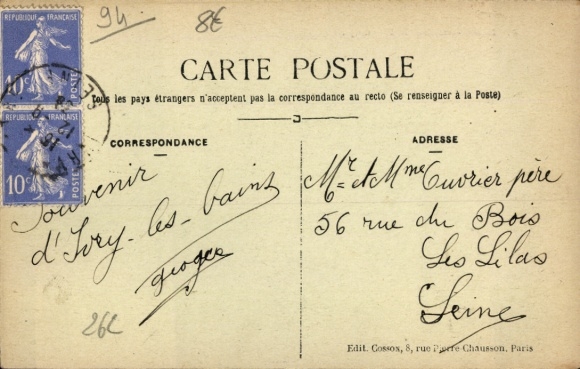 94
8€
RÉPUBLIQUE FRANÇAISE
10c POSTES
RÉPUBLIQUE FRANÇAISE
10c POSTES
CARTE POSTALE
Tous les pays étrangers n'acceptent pas la correspondance au recto (Se renseigner à la Poste)
CORRESPONDANCE
ADRESSE
Souvenir
d'Ivry-les-bains
Georges
Mr et Mme Cuvrier père
56 rue du Bois
Les Lilas
Seine
Edit. Cossox, 8, rue Pierre-Chausson, Paris